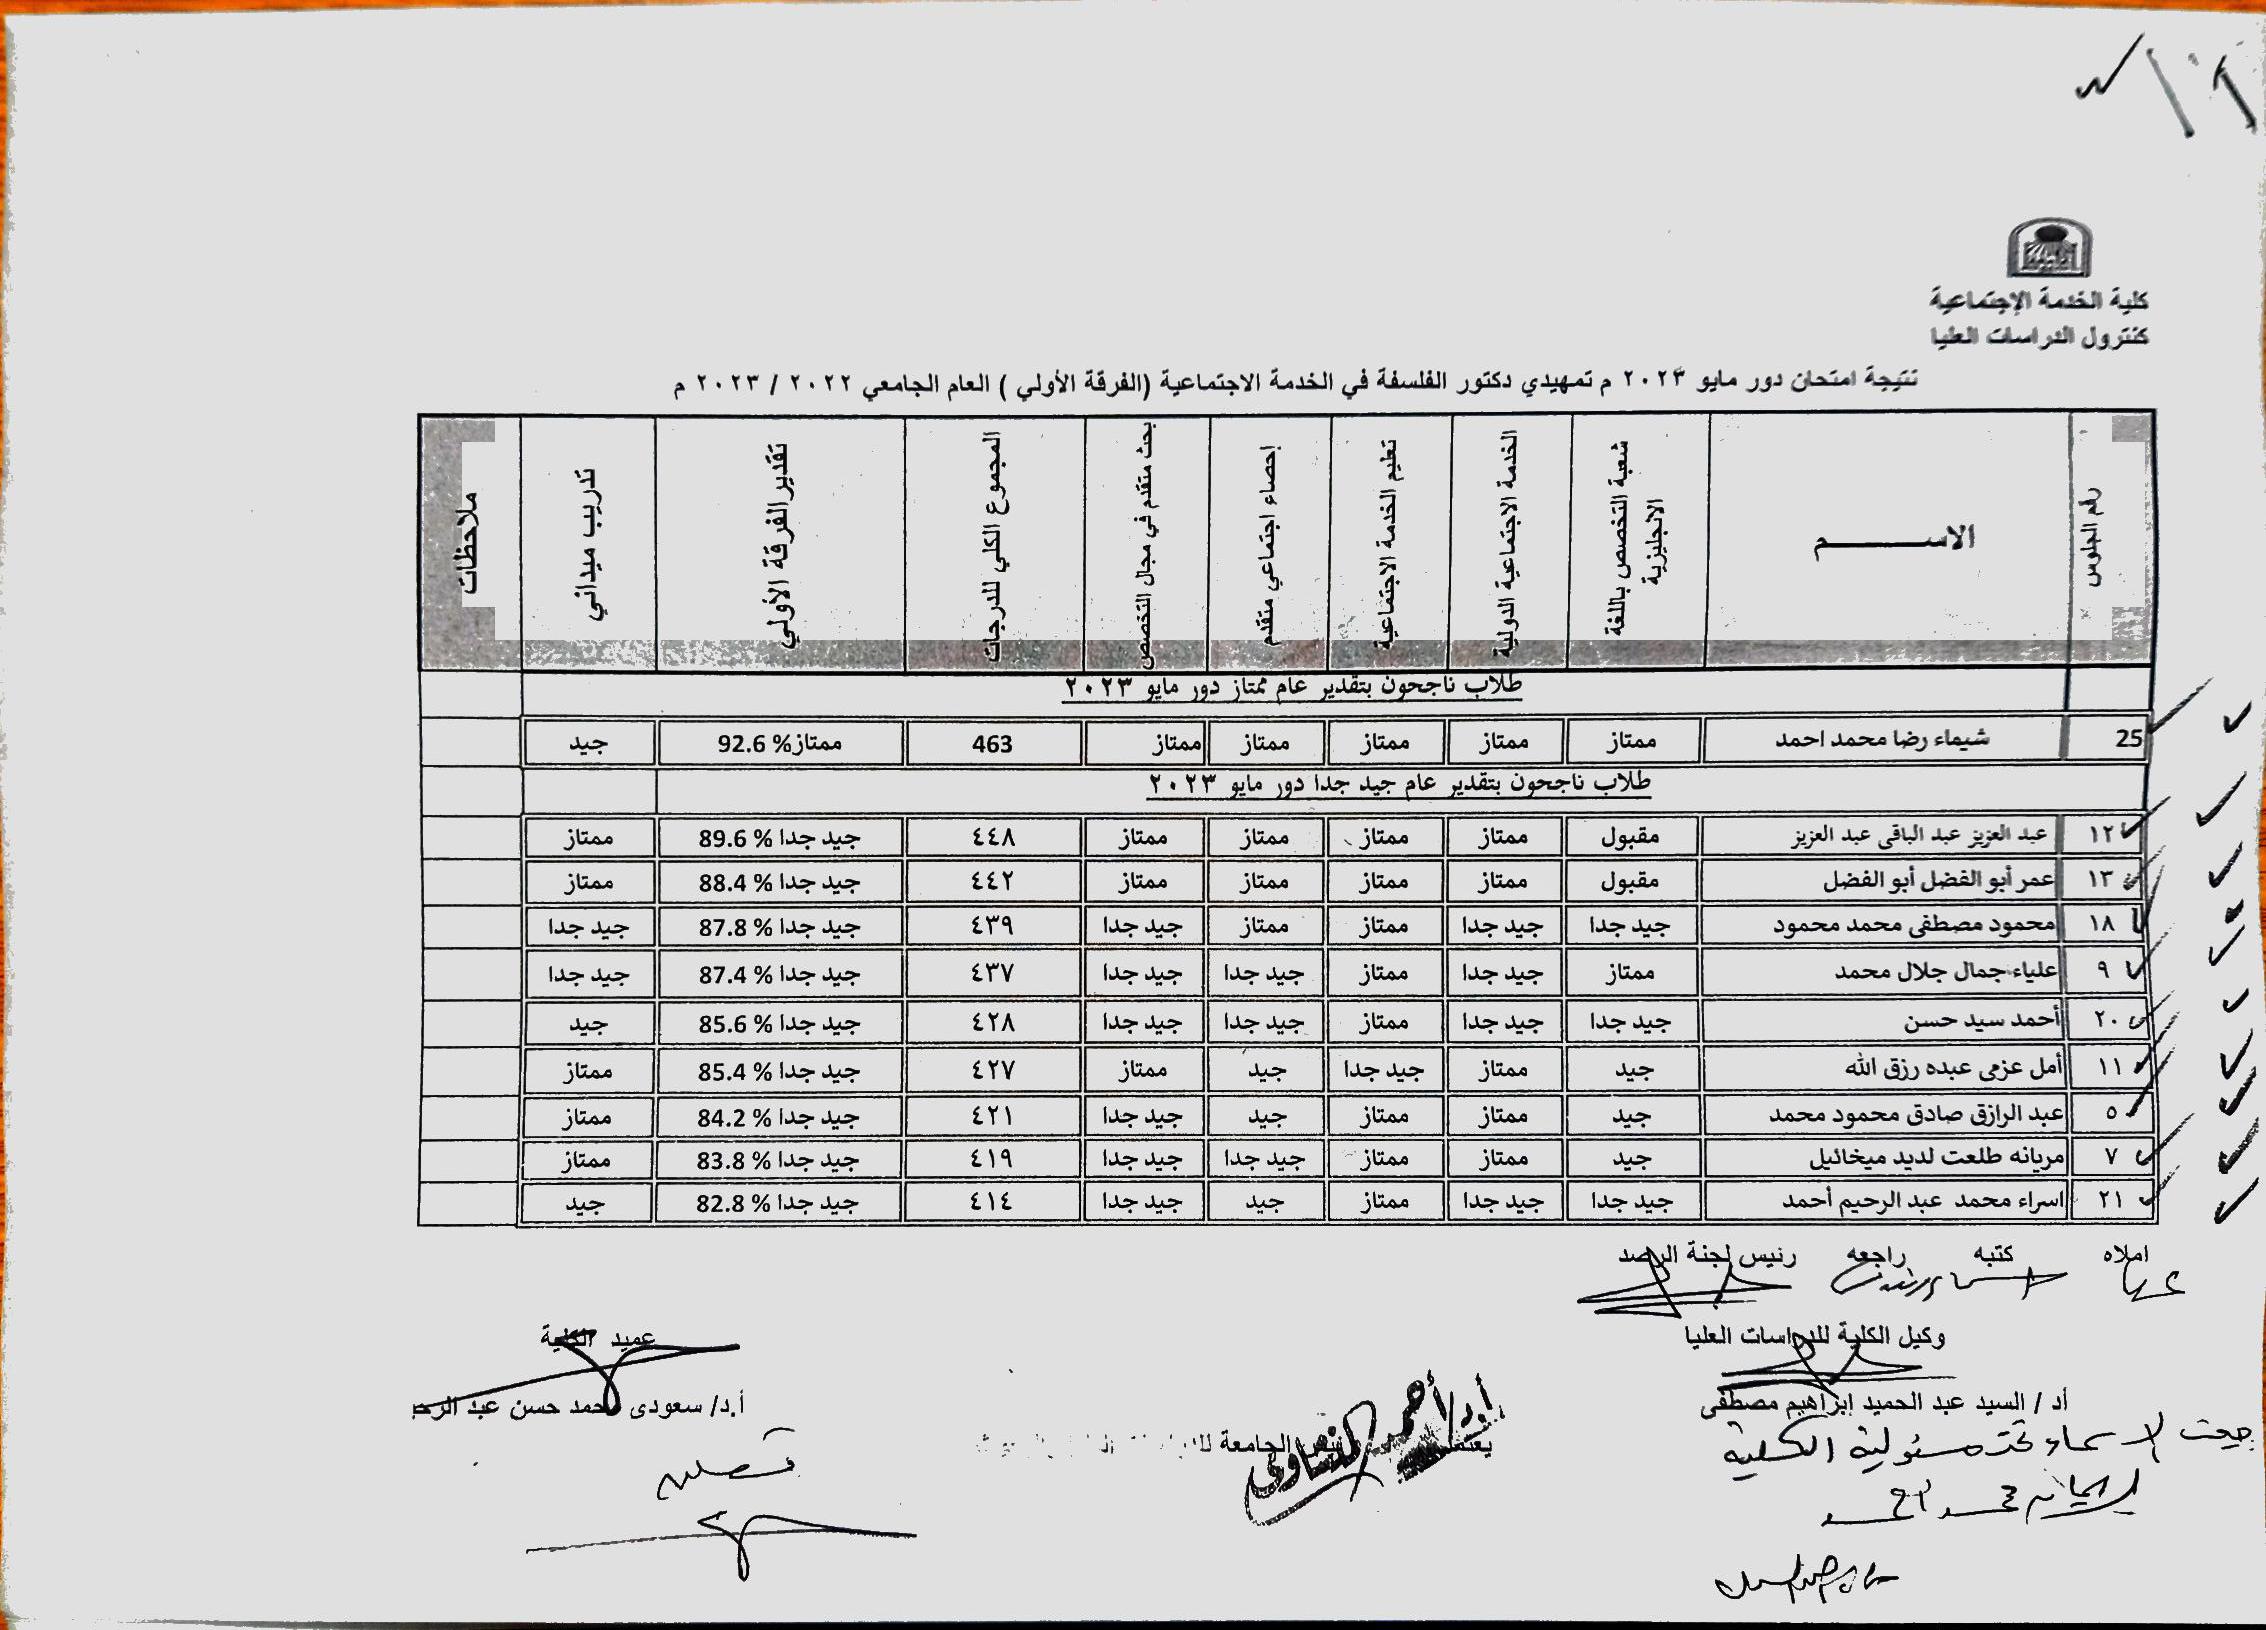 كلية الخدمة الإجتماعية
كنترول الدراسات العليا
نتيجة امتحان دور مايو ٢٠٢٣ م تمهيدي دكتور الفلسفة في الخدمة الاجتماعية (الفرقة الأولي ) العام الجامعي ٢٠٢٢ / ٢٠٢٣ م
رقم الجلوس الاســــــم شعبة التخصص باللغة الانجليزية الخدمة الاجتماعية الدولية تعليم الخدمة الاجتماعية إحصاء اجتماعي متقدم بحث متقدم في مجال التخصص المجموع الكلي للدرجات تقدير الفرقة الأولي تدريب ميداني ملاحظات
طلاب ناجحون بتقدير عام ممتاز دور مايو ٢٠٢٣
25 شيماء رضا محمد احمد ممتاز ممتاز ممتاز ممتاز ممتاز 463 ممتاز% 92.6 جيد
طلاب ناجحون بتقدير عام جيد جدا دور مايو ٢٠٢٣
١٢ عبد العزيز عبد الباقى عبد العزيز مقبول ممتاز ممتاز ممتاز ممتاز ٤٤٨ جيد جدا % 89.6 ممتاز
١٣ عمر أبو الفضل أبو الفضل مقبول ممتاز ممتاز ممتاز ممتاز ٤٤٢ جيد جدا % 88.4 ممتاز
١٨ محمود مصطفى محمد محمود جيد جدا جيد جدا ممتاز ممتاز جيد جدا ٤٣٩ جيد جدا % 87.8 جيد جدا
٩ علياء جمال جلال محمد ممتاز جيد جدا ممتاز جيد جدا جيد جدا ٤٣٧ جيد جدا % 87.4 جيد جدا
٢٠ أحمد سيد حسن جيد جدا جيد جدا ممتاز جيد جدا جيد جدا ٤٢٨ جيد جدا % 85.6 جيد
١١ أمل عزمى عبده رزق الله جيد ممتاز جيد جدا جيد ممتاز ٤٢٧ جيد جدا % 85.4 ممتاز
٥ عبد الرازق صادق محمود محمد جيد ممتاز ممتاز جيد جيد جدا ٤٢١ جيد جدا % 84.2 ممتاز
٧ مريانه طلعت لديد ميخائيل جيد ممتاز ممتاز جيد جدا جيد جدا ٤١٩ جيد جدا % 83.8 ممتاز
٢١ اسراء محمد عبد الرحيم أحمد جيد جدا جيد جدا ممتاز جيد جيد جدا ٤١٤ جيد جدا % 82.8 جيد
املاه كتبه راجعه رئيس لجنة الرصد
وكيل الكلية للدراسات العليا عميد الكلية
أد / السيد عبد الحميد ابراهيم مصطفى أ.د/ سعودى محمد حسن عبد
أ.د/ أحمد
يعتمد الجامعة
الاسماء تحت مسئولية الكلية